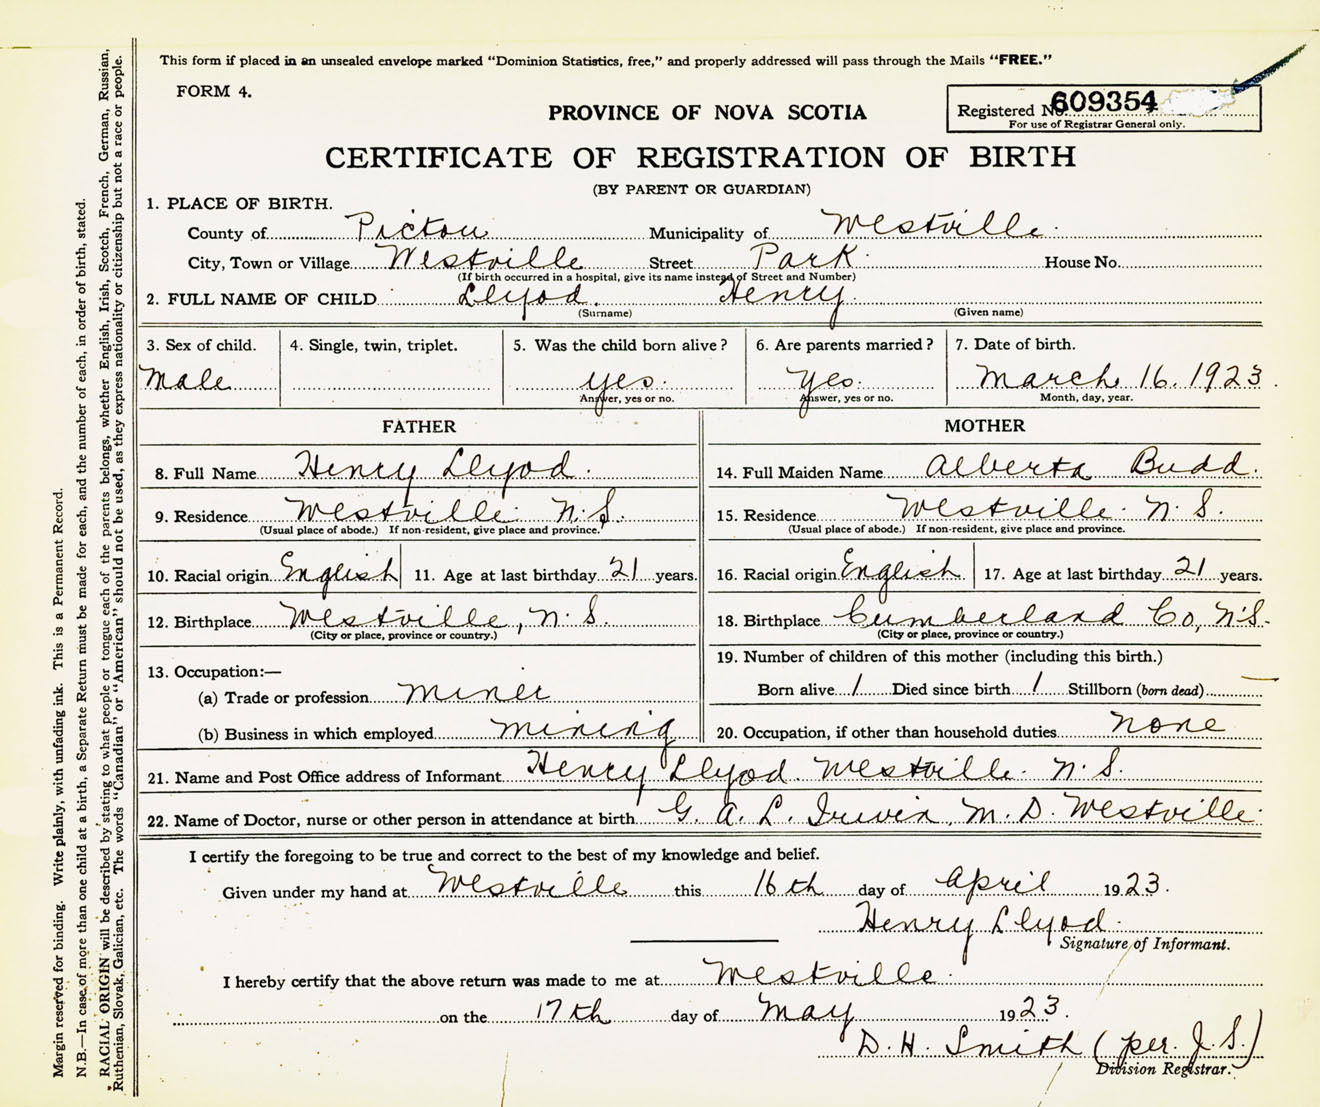 This form if placed in an unsealed envelope marked “Dominion Statistics, free,” and properly addressed will pass through the Mails “FREE.”
FORM 4.
PROVINCE OF NOVA SCOTIA
Registered No. 609354
For use of Registrar General only.
CERTIFICATE OF REGISTRATION OF BIRTH
(BY PARENT OR GUARDIAN)
1. PLACE OF BIRTH.
County of Pictou Municipality of Westville
City, Town or Village Westville Street Park House No.
(If birth occurred in a hospital, give its name instead of Street and Number)
2. FULL NAME OF CHILD Llyod. Henry.
(Surname) (Given name)
3. Sex of child. 4. Single, twin, triplet. 5. Was the child born alive? 6. Are parents married? 7. Date of birth.
Male yes. Yes. March 16. 1923.
Answer, yes or no. Answer, yes or no. Month, day, year.
FATHER MOTHER
8. Full Name Henry Llyod. 14. Full Maiden Name Alberta Budd.
9. Residence Westville N.S. 15. Residence Westville. N.S.
(Usual place of abode.) If non-resident, give place and province. (Usual place of abode.) If non-resident, give place and province.
10. Racial origin English 11. Age at last birthday 21 years. 16. Racial origin English 17. Age at last birthday 21 years.
12. Birthplace Westville, N.S. 18. Birthplace Cumberland Co, N.S.
(City or place, province or country.) (City or place, province or country.)
13. Occupation:— 19. Number of children of this mother (including this birth.)
(a) Trade or profession Miner Born alive 1 Died since birth 1 Stillborn (born dead) —
(b) Business in which employed Mining 20. Occupation, if other than household duties None
21. Name and Post Office address of Informant Henry Llyod. Westville. N.S.
22. Name of Doctor, nurse or other person in attendance at birth G. A. L. Irwin, M.D. Westville.
I certify the foregoing to be true and correct to the best of my knowledge and belief.
Given under my hand at Westville this 16th day of April 1923.
Henry Llyod.
Signature of Informant.
I hereby certify that the above return was made to me at Westville.
on the 17th day of May 1923.
D. H. Smith (per. J.S.)
Division Registrar.
Margin reserved for binding. Write plainly, with unfading ink. This is a Permanent Record.
N.B.—In case of more than one child at a birth, a Separate Return must be made for each, and the number of each, in order of birth, stated.
RACIAL ORIGIN will be described by stating to what people or tongue each of the parents belongs, whether English, Irish, Scotch, French, German, Russian,
Ruthenian, Slovak, Galician, etc. The words “Canadian” or “American” should not be used, as they express nationality or citizenship but not a race or people.